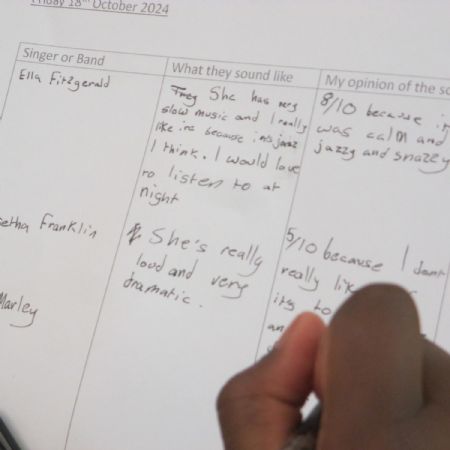 Friday 18th October 2024
Singer or Band
What they sound like
My opinion of the so
Ella Fitzgerald
She has very
slow music and I really
like it because its jazz
I think. I would love
to listen to at
night
8/10 because it
was calm and
jazzy and snazzy
etha Franklin
She's really
loud and very
dramatic.
5/10 because I dont
really like
its to
an
Marley